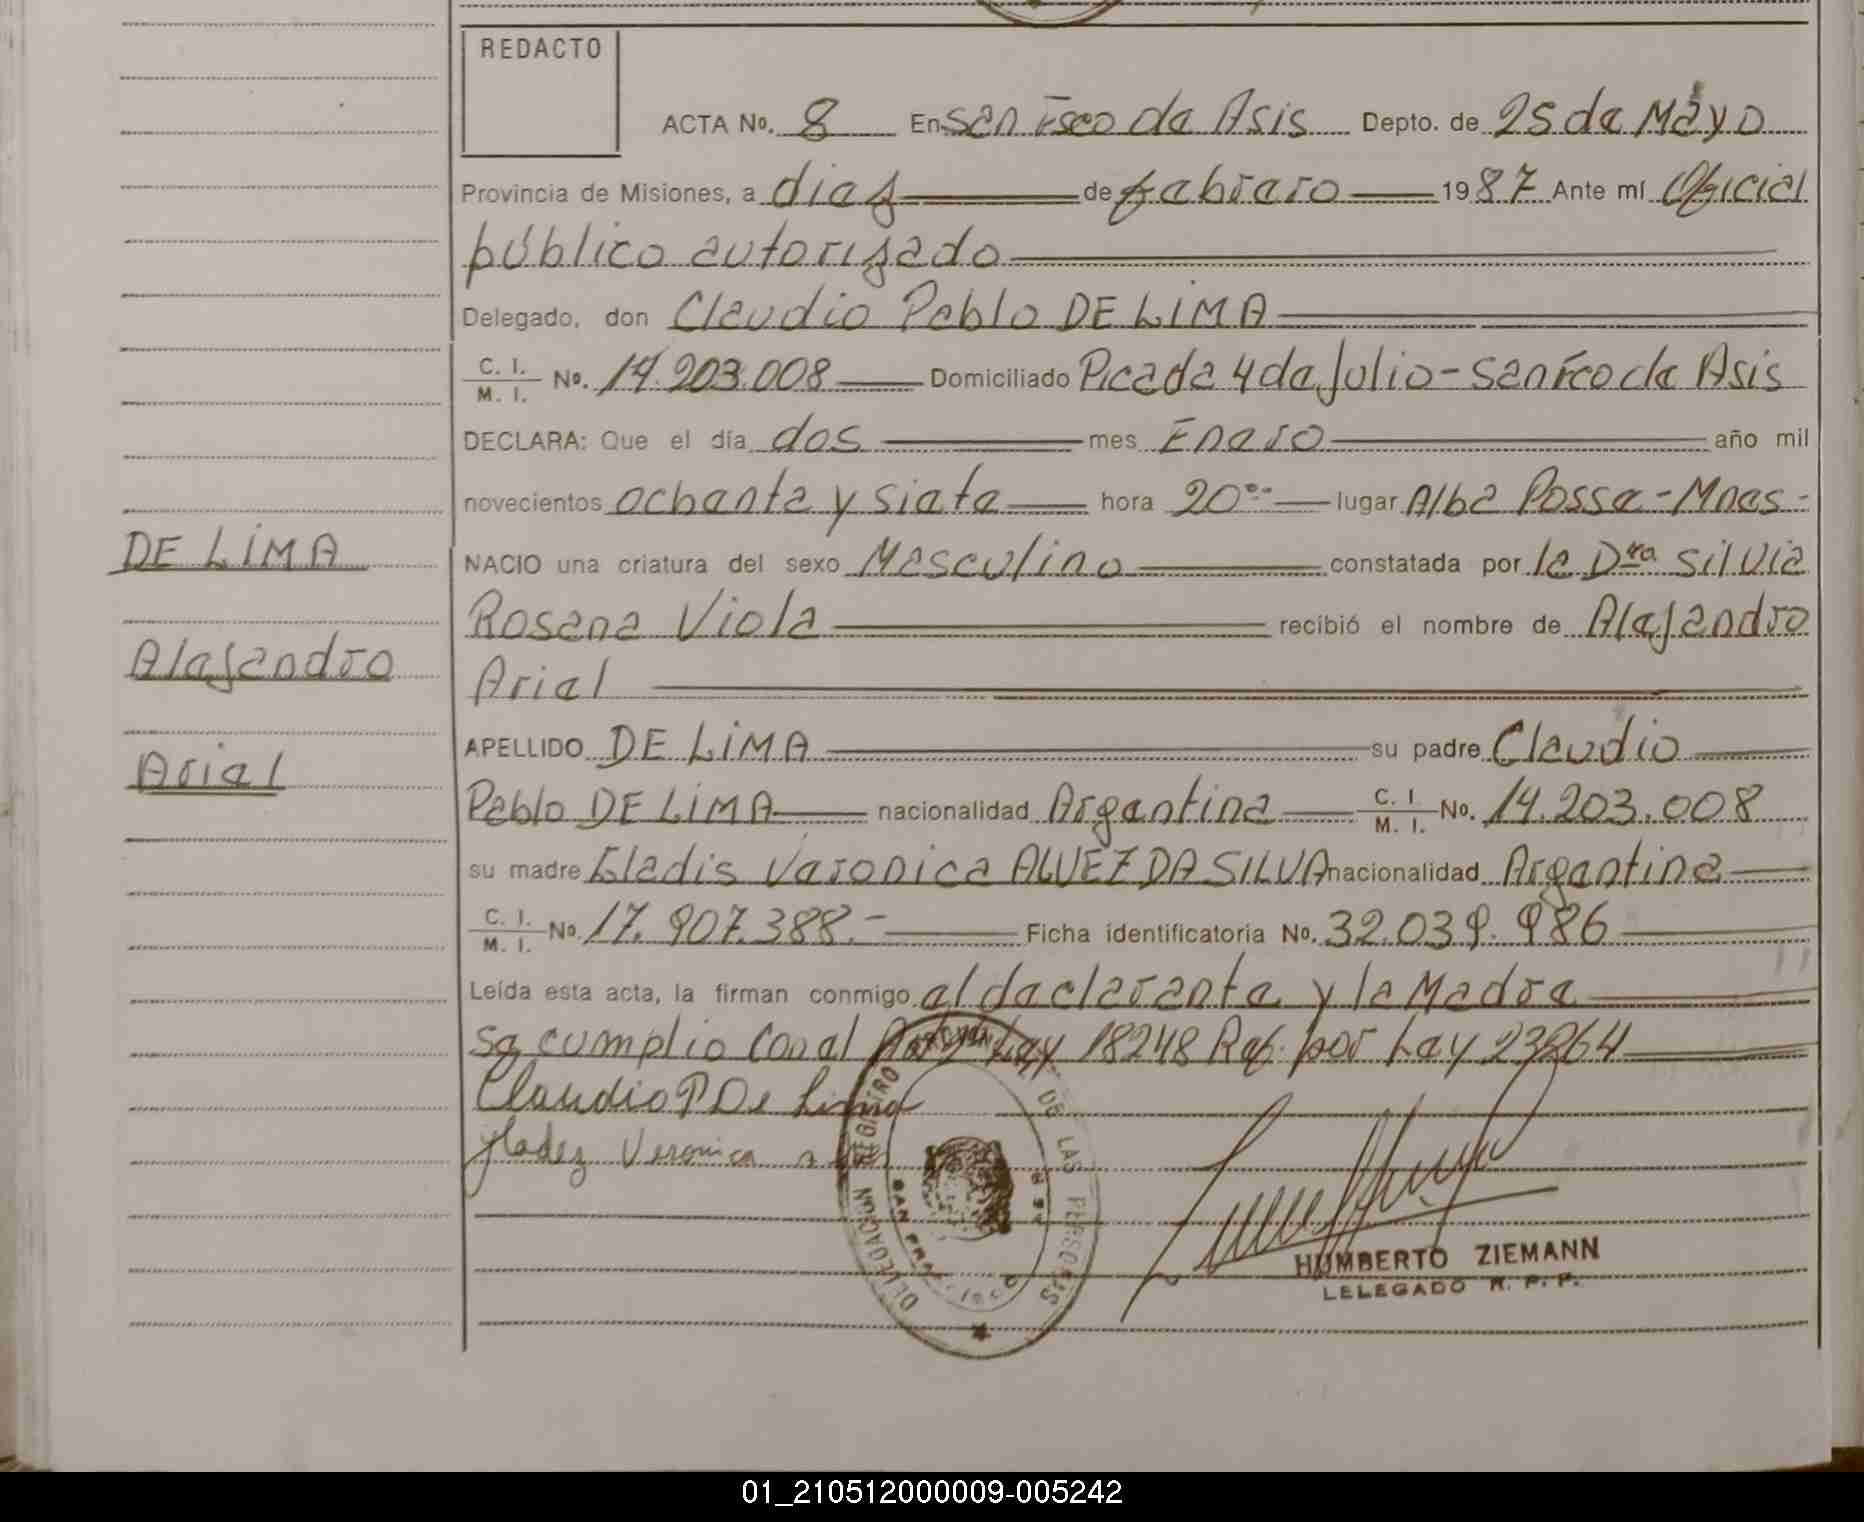 REDACTO
ACTA No. 8 En San Fsco de Asis Depto. de 25 de Mayo
Provincia de Misiones, a diez de febrero 1987 Ante mí Oficial
público autorizado
Delegado, don Claudio Pablo DE LIMA
C. I. / M. I. No. 14.203.008 Domiciliado Picada 4 de Julio - San Fco de Asis
DECLARA: Que el día dos mes Enero año mil
novecientos ochenta y siete hora 20 lugar Alba Posse - Mnes -
DE LIMA
NACIO una criatura del sexo Masculino constatada por la Dra Silvia
Rosana Viola recibió el nombre de Alejandro
Alejandro
Ariel
APELLIDO DE LIMA su padre Claudio
Ariel
Pablo DE LIMA nacionalidad Argentina C. I. / M. I. No. 14.203.008
su madre Gladis Veronica ALVEZ DA SILVA nacionalidad Argentina
C. I. / M. I. No. 17.907.388.- Ficha identificatoria No. 32.039.986
Leída esta acta, la firman conmigo el declarante y la Madre
se cumplio con el Ley 18248 Ref. por Ley 23264
Claudio P De Lima
Gladez Veronica
DELEGACION REGISTRO DE LAS PERSONAS
SAN FRANCISCO
HUMBERTO ZIEMANN
DELEGADO R. P. P.
01_210512000009-005242